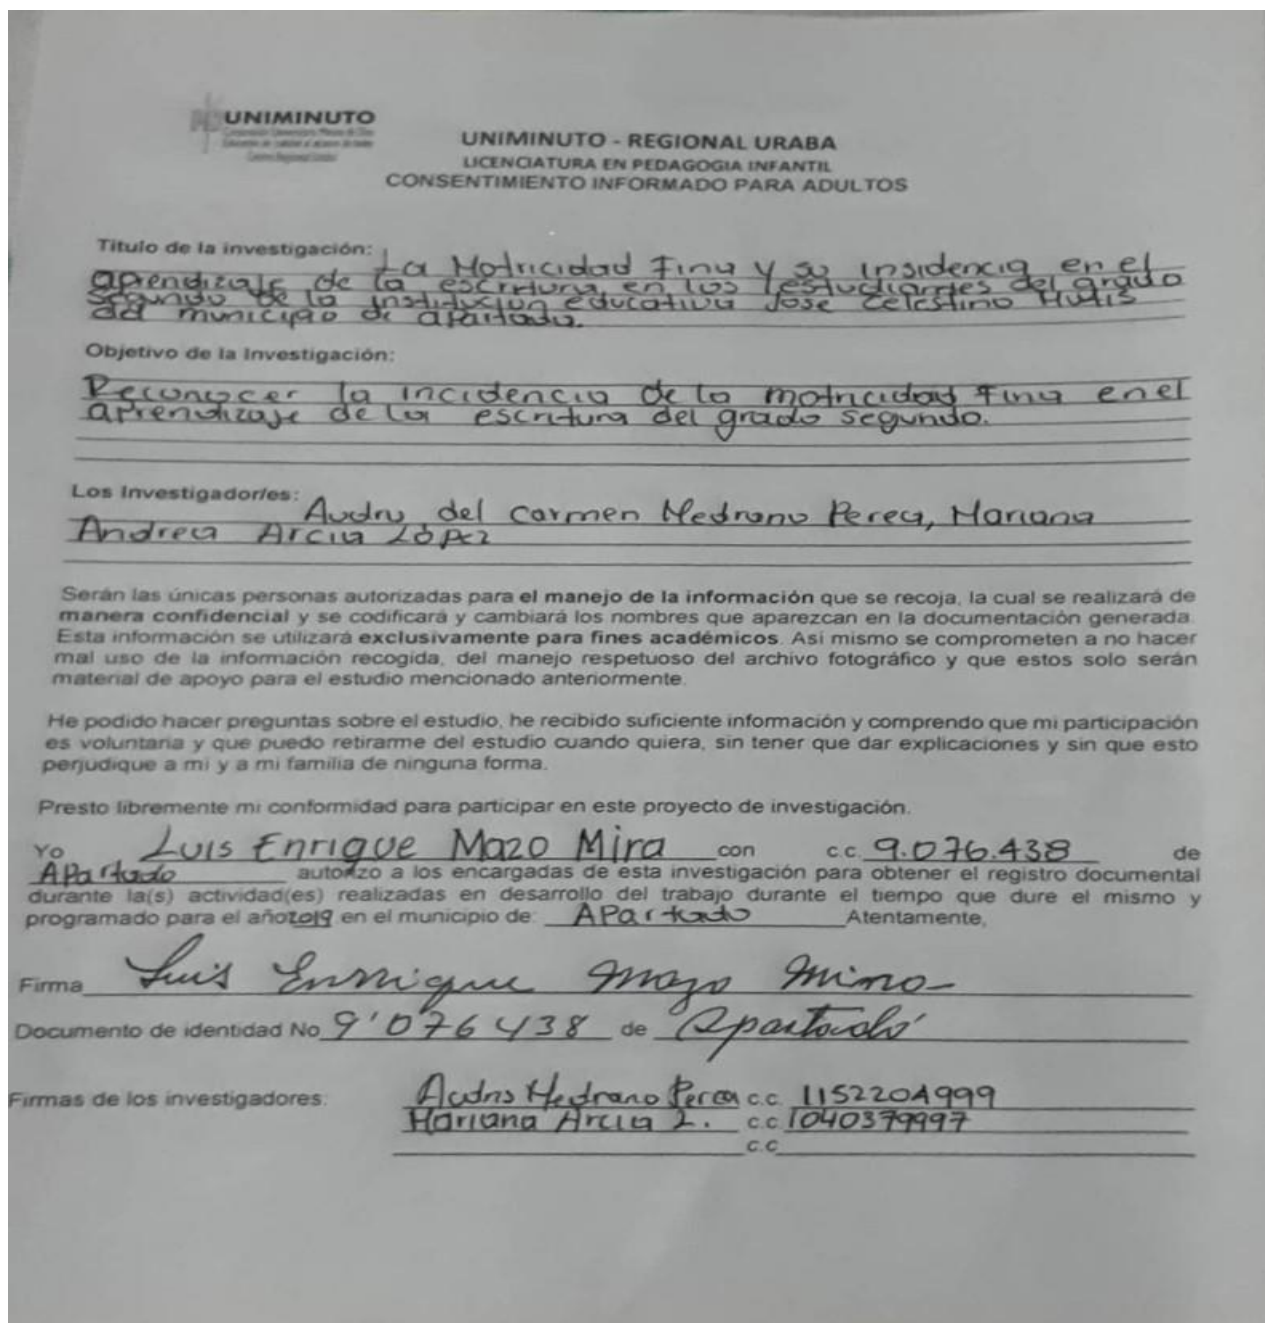 UNIMINUTO
UNIMINUTO - REGIONAL URABA
LICENCIATURA EN PEDAGOGIA INFANTIL
CONSENTIMIENTO INFORMADO PARA ADULTOS
Titulo de la investigación: La Motricidad Fina y su insidencia en el
aprendizaje de la escritura en los estudiantes del grado
segundo de la institucion educativa Jose Celestino Mutis
del municipio de apartado.
Objetivo de la Investigación:
Reconocer la incidencia de la motricidad fina en el
aprendizaje de la escritura del grado segundo.
Los Investigador/es: del Carmen Medrano Perea, Mariana
Andrea Arcia López
Serán las únicas personas autorizadas para el manejo de la información que se recoja, la cual se realizará de
manera confidencial y se codificará y cambiará los nombres que aparezcan en la documentación generada.
Esta información se utilizará exclusivamente para fines académicos. Asi mismo se comprometen a no hacer
mal uso de la información recogida, del manejo respetuoso del archivo fotográfico y que estos solo serán
material de apoyo para el estudio mencionado anteriormente.
He podido hacer preguntas sobre el estudio, he recibido suficiente información y comprendo que mi participación
es voluntaria y que puedo retirarme del estudio cuando quiera, sin tener que dar explicaciones y sin que esto
perjudique a mi y a mi familia de ninguna forma.
Presto libremente mi conformidad para participar en este proyecto de investigación.
Yo Luis Enrique Mazo Mira con c.c. 9.076.438 de
APartado autorizo a los encargadas de esta investigación para obtener el registro documental
durante la(s) actividad(es) realizadas en desarrollo del trabajo durante el tiempo que dure el mismo y
programado para el año 2019 en el municipio de: APartado Atentamente,
Firma Luis Enrrique Mazo Mira
Documento de identidad No 9'076438 de Apartadó
Firmas de los investigadores: Medrano Perea c.c. 1152204999
Mariana Arcia L. c.c 1040379997
c.c